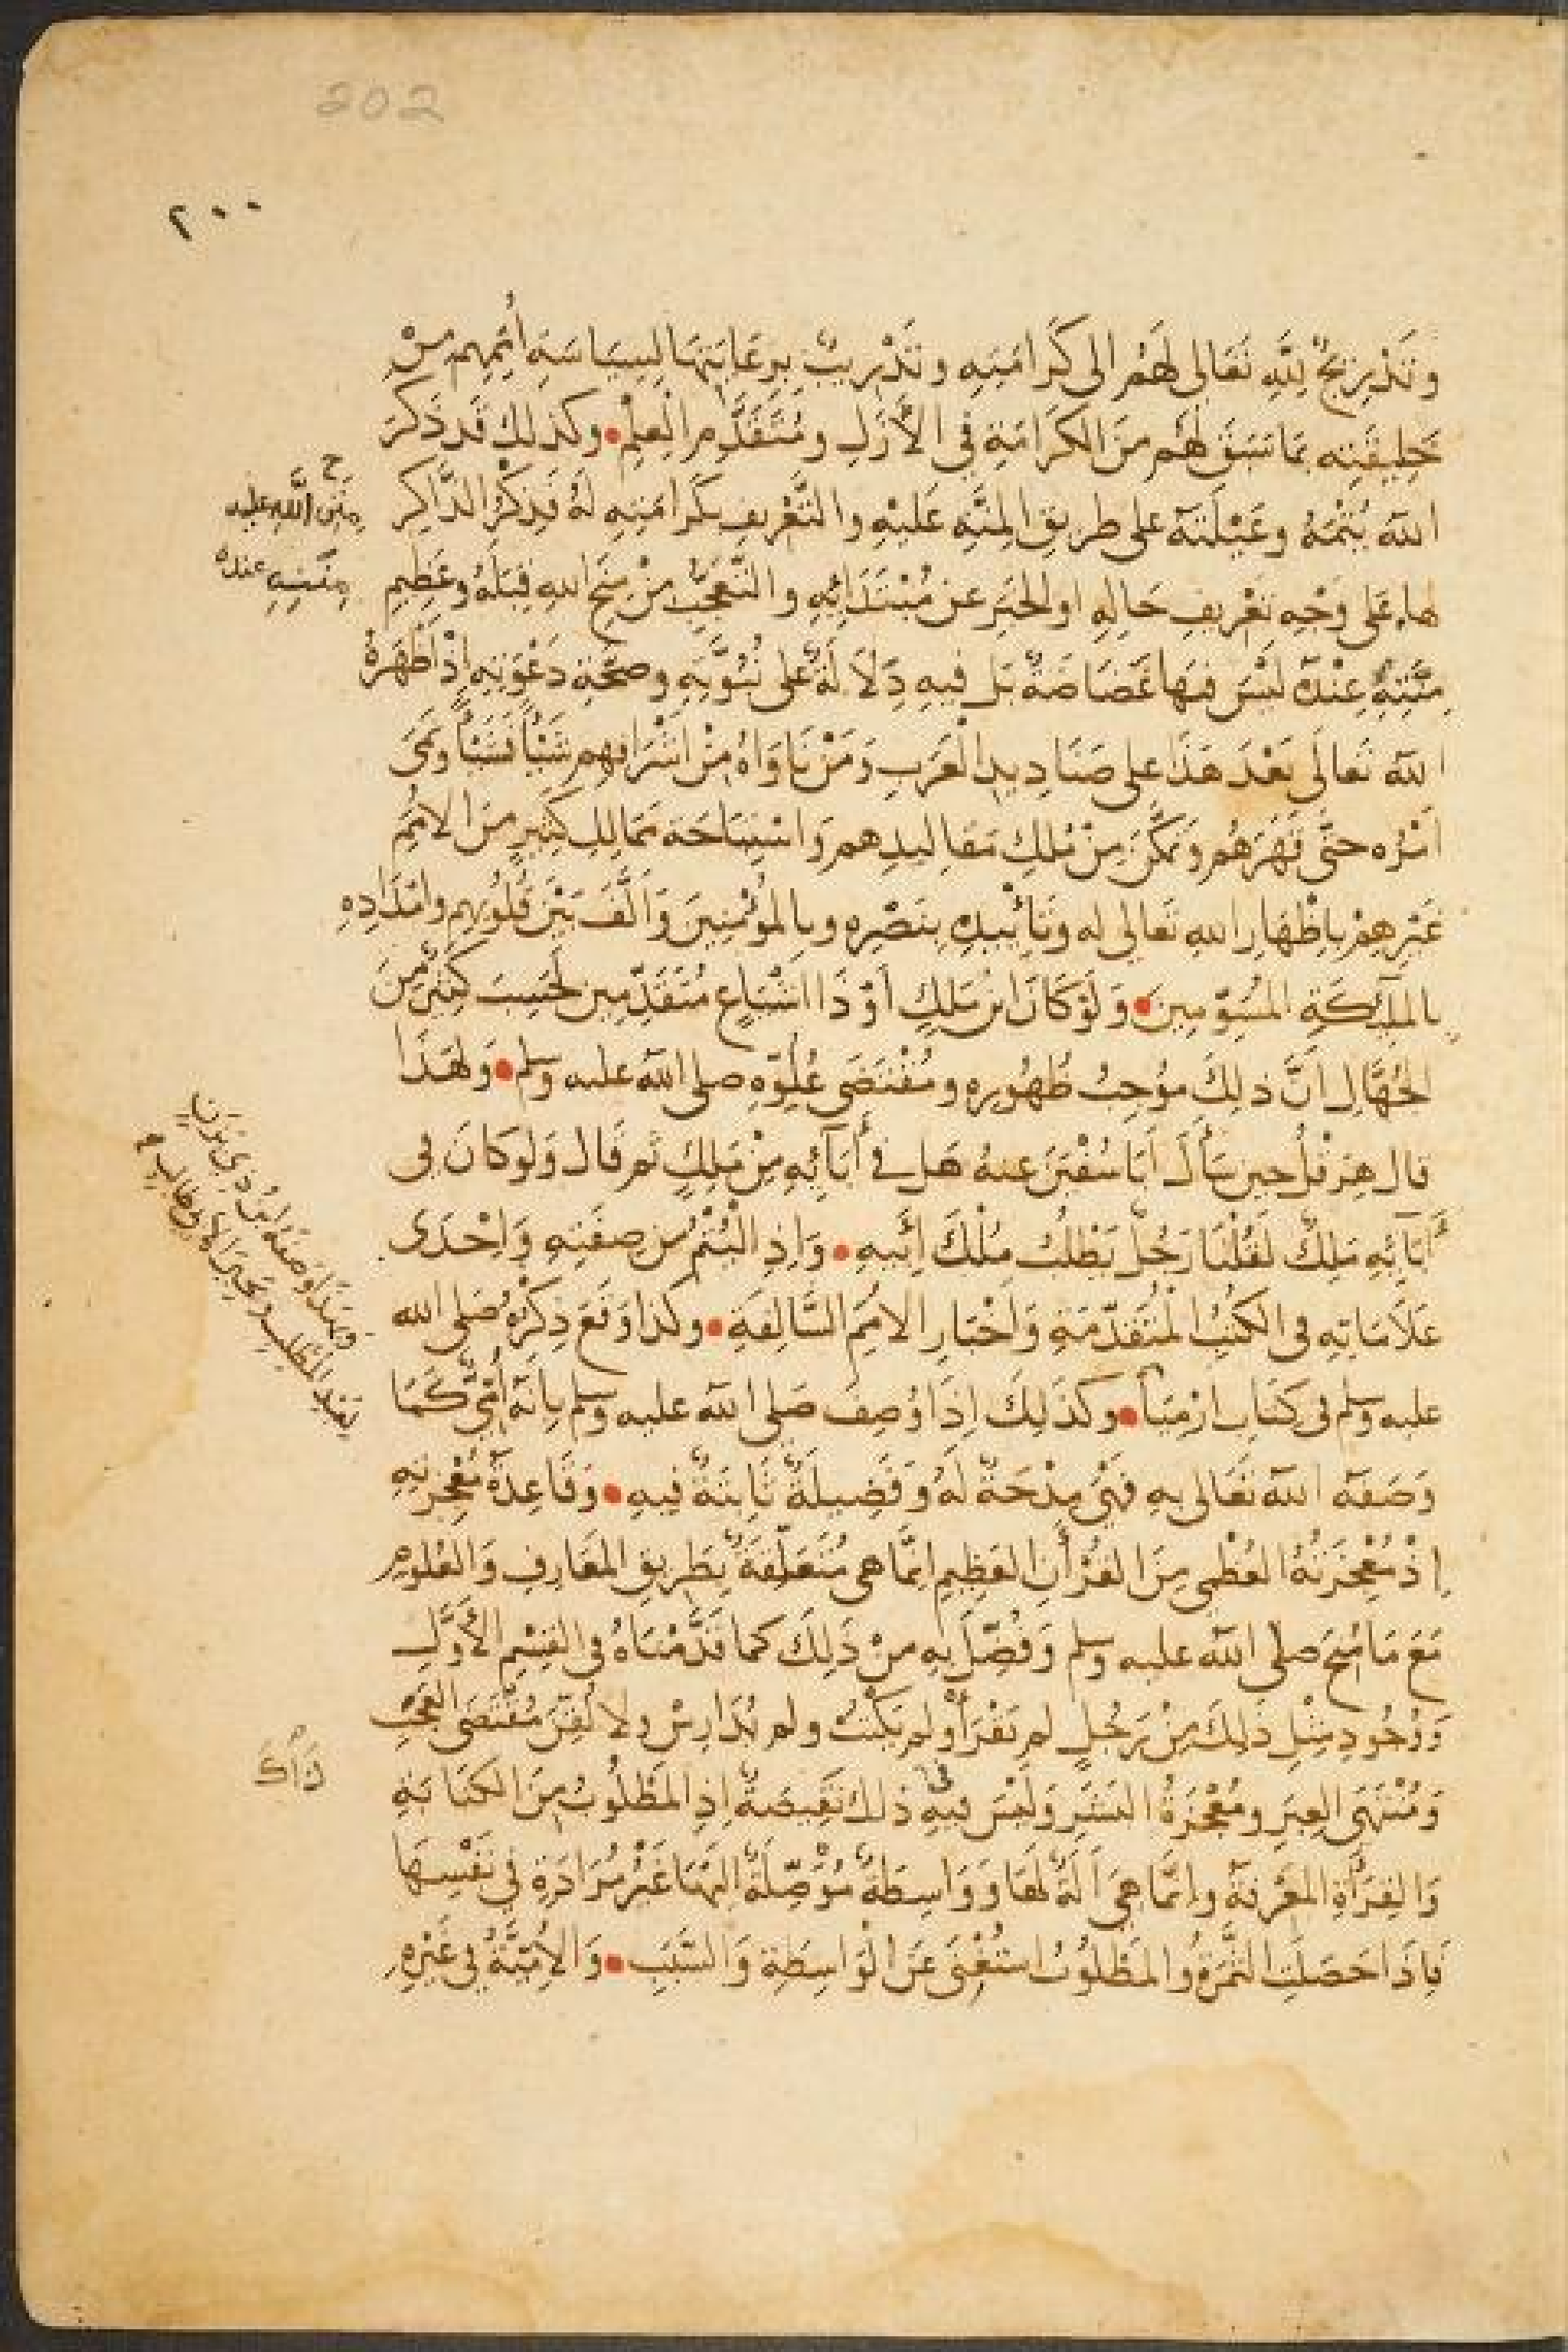 202
٢٠٠
وَتَدْرِيجٌ لِلَّهِ تَعَالى لَهُمْ الى كَرَامَتِهِ وتَدْرِيبٌ بِرِعَايَتِهَا لِسِيَاسَةِ أُمَمِهِم مِنْ
خَلِيقَتِهِ بمَا سَبَقَ لَهُم مِنَ الكَرَامَةِ فِي الأَزَلِ ومُتَقَدَّمِ العِلْمِ • وكذلك قَد ذَكَرَ
الله يُتْمَهُ وعَيْلَتَهُ على طريق المِنَّهِ عَلَيْهِ والتَّعْرِيفِ بكَرامَتِهِ لَهُ فَذِكْرُ الذَّاكِرِ
لها على وَجْهِ تَعْرِيفِ حَالِهِ او الخَبَرِ عن مُبْتَدَائِهِ والتَّعَجُّبِ مِنْ مِنَحِ اللهِ قِبَلَهُ وعَظِيمِ
مِنَّتِهِ عِنْدَهُ لَيْسَ فيهَا غَضَاضَةٌ بَل فيهِ دِلَالَةٌ على نُبُوَّتِهِ وصِحَّةِ دَعْوَتِهِ إِذْ أَظْهَرَهُ
الله تَعالَى بَعْدَ هَذَا على صَنَادِيدِ العَرَبِ وَمَنْ نَاوَاهُ مِنْ اشْرَافِهِم شَيْأً فَشَيْأً ونمَى
أمْرُه حتَّى قَهَرَهُم وتَمكَّنَ مِنْ مُلكِ مَقاليدِهم وَاسْتِبَاحَة مَمَالِكِ كَثِيرٍ مِنَ الامَمِ
غَيْرِهِمْ باِظْهَارِ اللهِ تَعَالى له وتَأْيِيدِهِ بِنَصْرِهِ وبالمؤمِنِينَ وَألَّفَ بَيْنَ قُلُوبِهم وامْدَادِهِ
بالملَآئكَةِ المُسَوّمِينَ • وَلَوْ كَانَ ابنَ مَلِكٍ أوْ ذَا اشْيَاعٍ مُتَقَدِّمِين لَحَسِبَ كَثِيرٌ مِنَ
الجُهَّالِ انَّ ذلِكَ مُوجِبُ ظُهُورِهِ ومُقْتَضَى عُلُوِّهِ صلى الله عليه وسلم • وَلِهَذَا
قالَ هِرَقْلُ حِينَ سَأَلَ أبَا سُفْيَن عنهُ هَل في أبَآئِهِ مِنْ مَلِكٍ ثم قَال وَلَو كانَ في
أبَآئِهِ مَلِكٌ لَقُلْنَا رَجُلٌ يَطْلُبُ مُلْكَ أبِيهِ • وَاِذِ اليُتْمُ مِن صِفَتِهِ وَاِحْدَى
عَلَامَاتِهِ في الكُتُبِ المُتَقدِّمَةِ وَأخْبَارِ الامَمِ السَّالِفَةِ • وكذا وَقَعَ ذِكْرُهُ صَلى الله
عليه وسلم في كِتَابِ ارْمِيَا • وكذَلِكَ إذَا وُصِفَ صَلى الله عليه وسلم بِأنَّهُ أُمِّيٌّ كَمَا
وَصَفَهُ الله تَعَالى بِهِ فَهْيَ مِدْحَةٌ لَهُ وفَضِيلَةٌ ثَابِتَةٌ فِيهِ • وَقَاعِدَةُ مُعْجِزَتِهِ
اِذْ مُعْجِزَتُهُ العُظْمى مِنَ القُرْأنِ العَظِيمِ اِنَّمَا هي مُتَعَلِّقَةٌ بِطَرِيقِ المعَارِفِ وَالعُلُومِ
مَعَ مَا مُنِحَ صلى الله عليه وسلم وَفُضِّلَ بِهِ مِنْ ذَلِكَ كما قَدَّمْنَاهُ في القِسْمِ الأَوَّلِ
وَوُجُودِ مِثْلِ ذَلِكَ مِنْ رَجُلٍ لم يَقْرَأْ ولم يَكْتُبْ ولم يُدَارِسْ ولا لُقِّنَ مُقْتَضَى العَجَبِ
وَمُنْتَهَى العِبَرِ ومُعْجِزَةُ البَشَرِ وَلَيْسَ فيهِ ذلك نَقِيصَةٌ اِذِ المَطْلُوبُ مِنَ الكِتَابَةِ
وَالقِرَأَةِ المَعْرِفَةُ وانَّمَا هِيَ اَلَةٌ لَهَا وَوَاسِطَةٌ مُوَصِّلَةٌ اِليْهَا غَيْرُ مُرَادَةٍ في نَفْسِهَا
فَاِذَا حَصَلَتِ الثَّمَرَةُ والمَطْلُوبُ استُغْنِىَ عَنِ الوَاسِطَةِ وَالسَّبَبِ • وَالاُمِّيَّةُ في غَيْرِهِ
ح
مِنَنِ اللَّهِ عليه
مِنَّتِهِ عنده
وبهذا وصفه ابن ذي يزن
لعبد المطلب وبحيرا لابي طالب